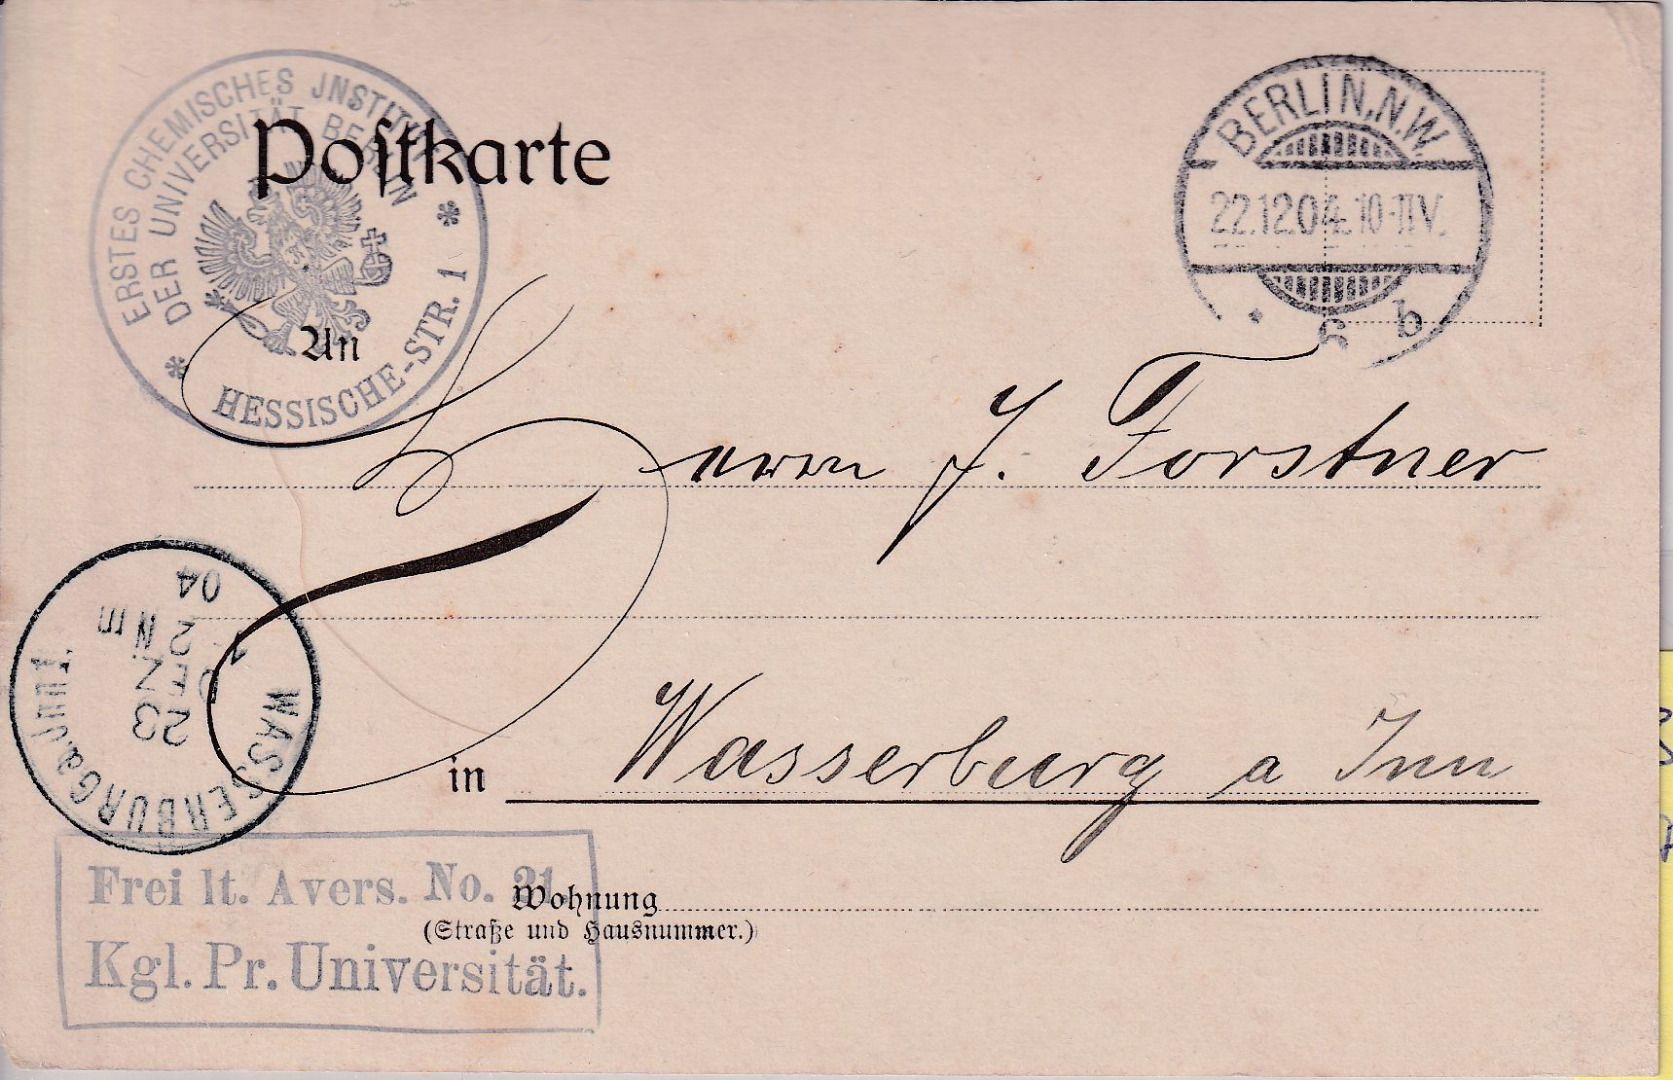 ERSTES CHEMISCHES JNSTITUT
DER UNIVERSITÄT BERLIN
HESSISCHE-STR. 1
Postkarte
BERLIN, N.W
22.12.04. 10-11V.
6 b
An
Herrn J. Forstner
in Wasserburg a Inn
WASSERBURG a. Jnn I.
23
DEZ
2 Nm
04
Frei lt. Avers. No. 21.
Kgl. Pr. Universität.
Wohnung
(Straße und Hausnummer.)